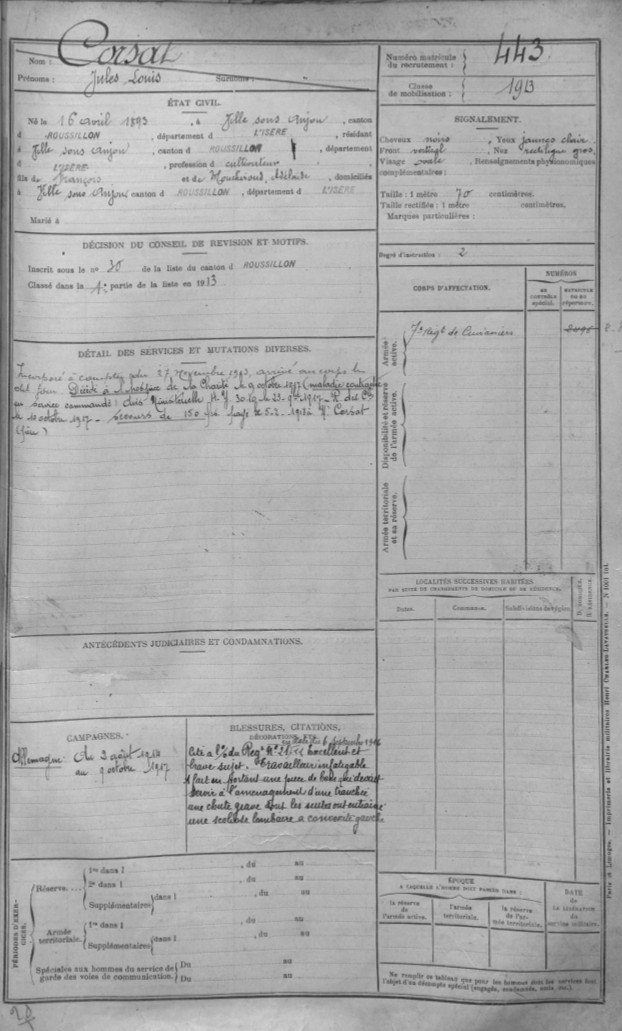 Nom : Corsat
Prénoms : Jules Louis Surnoms :
ÉTAT CIVIL.
Né le 16 avril 1893, à Ville sous Anjou, canton
d ROUSSILLON, département d L'ISÈRE, résidant
à Ville sous Anjou, canton d ROUSSILLON, département
d L'ISÈRE, profession d cultivateur
fils de François et de Adélaïde, domiciliés
à Ville sous Anjou canton d ROUSSILLON, département d L'ISÈRE
Marié à
DÉCISION DU CONSEIL DE REVISION ET MOTIFS.
Inscrit sous le n° 30 de la liste du canton d ROUSSILLON
Classé dans la partie de la liste en 1913
DÉTAIL DES SERVICES ET MUTATIONS DIVERSES.
Incorporé à compter du 27 Novembre 1913, arrivé au corps le
dit jour Décédé à de la Charité le 9 octobre 1917 (maladie
service Avis Ministériel
10 octobre 1917 - Secours de 150 payé le 5-2-1918 à Corsat
(père)
ANTÉCÉDENTS JUDICIAIRES ET CONDAMNATIONS.
CAMPAGNES.
Allemagne : Du 2 août 1914
au 9 octobre 1917
BLESSURES, CITATIONS,
DÉCORATIONS, ETC.
Cité à l'o/ du Reg. septembre 1916
Excellent et
brave sujet. Travailleur infatigable
A fait en portant une pièce de bois qui devait
servir à l'aménagement d'une tranchée
une chute grave dont les suites ont entrainé
une scoliose lombaire à convexité gauche
PÉRIODES D'EXERCICES.
Réserve....
1re dans l , du au
2e dans l , du au
Supplémentaires dans l , du au
Armée territoriale.
1re dans l , du au
Supplémentaires dans l , du au
Spéciales aux hommes du service de garde des voies de communication.
Du au
Du au
Numéro matricule du recrutement : 443
Classe de mobilisation : 1913
SIGNALEMENT.
Cheveux noirs, Yeux jaunes clair
Front vertical Nez rectiligne gros
Visage ovale Renseignements physionomiques
complémentaires :
Taille : 1 mètre 70 centimètres.
Taille rectifiée : 1 mètre centimètres.
Marques particulières :
Degré d'instruction : 2
CORPS D'AFFECTATION.
NUMÉROS
au contrôle spécial.
matricule ou au répertoire.
Armée active.
7e Régt de Cuirassiers
Disponibilité et réserve de l'armée active.
Armée territoriale et sa réserve.
LOCALITÉS SUCCESSIVES HABITÉES
PAR SUITE DE CHANGEMENTS DE DOMICILE OU DE RÉSIDENCE.
Dates. Communes. Subdivisions de région. D. domicile. R. résidence.
ÉPOQUE
A LAQUELLE L'HOMME DOIT PASSER DANS :
la réserve de l'armée active.
l'armée territoriale.
la réserve de l'armée territoriale.
DATE
de
LA LIBÉRATION
du
service militaire.
Ne remplir ce tableau que pour les hommes dont les services font
l'objet d'un décompte spécial (engagés, condamnés, omis, etc.).
Paris et Limoges. — Imprimerie et librairie militaires Henri CHARLES-LAVAUZELLE.